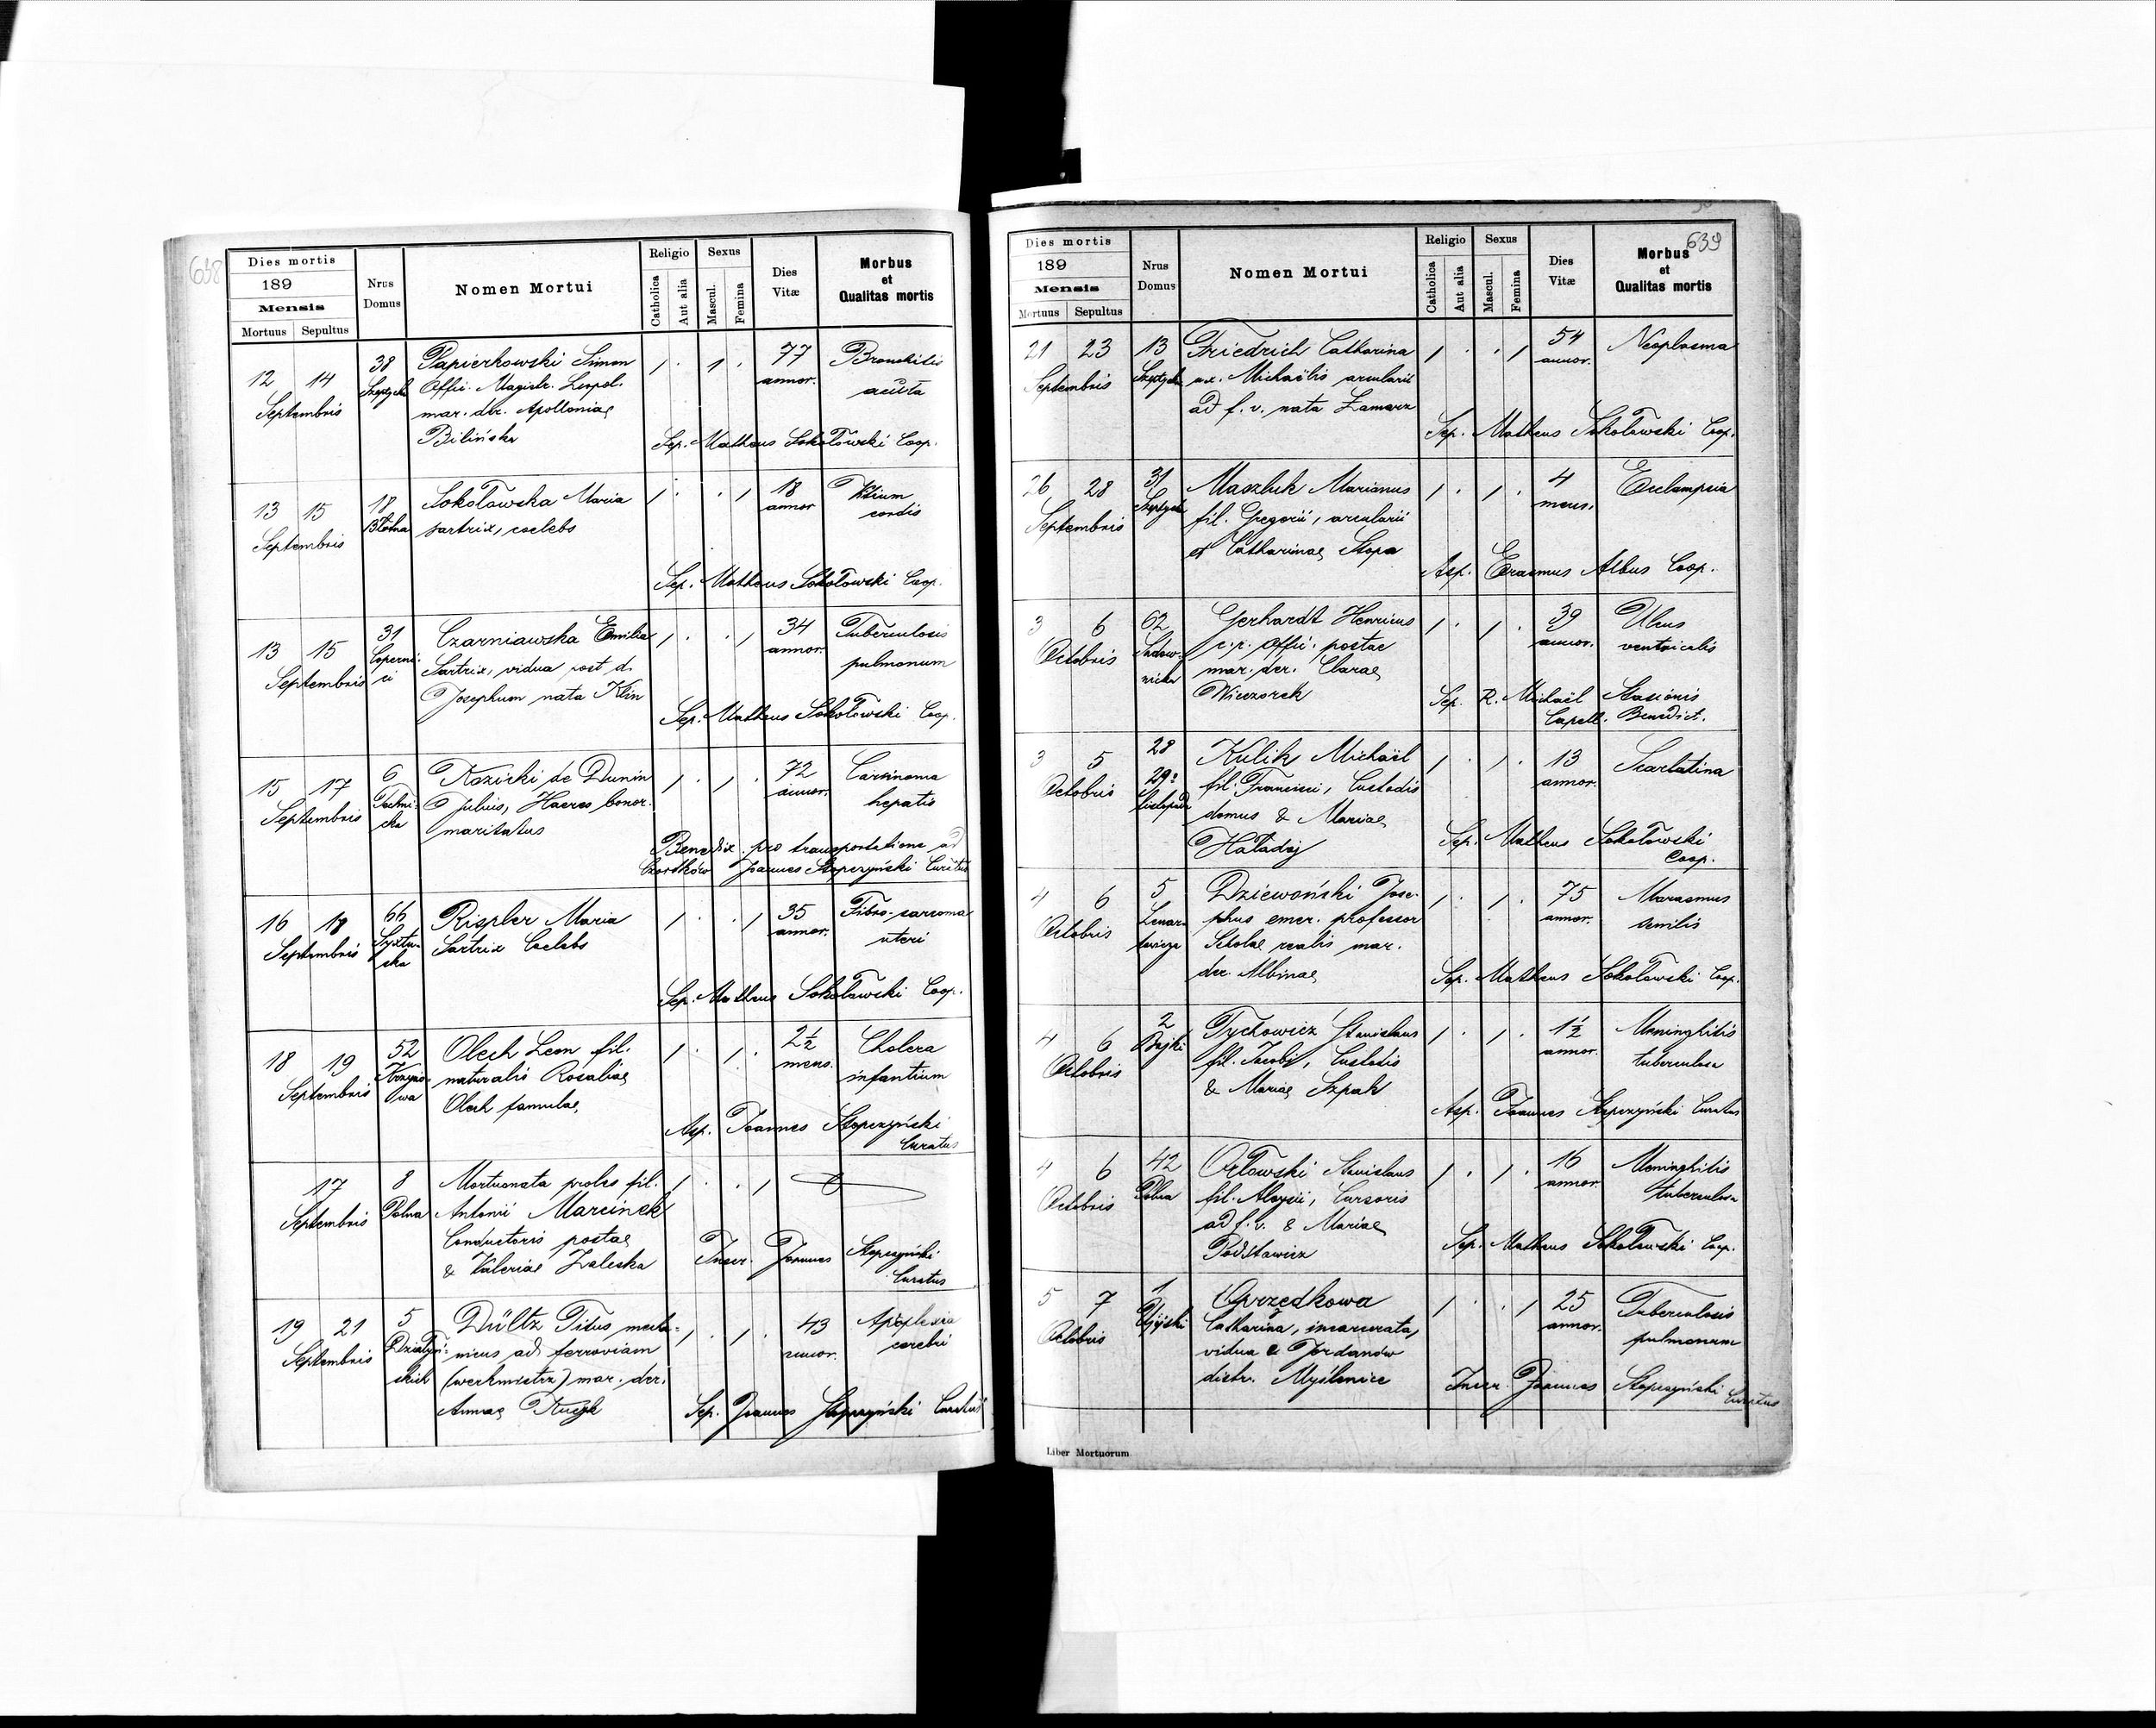 638
Dies mortis
189
Mensis
Mortuus Sepultus
Nrus Domus
Nomen Mortui
Religio
Catholica
Aut alia
Sexus
Mascul.
Femina
Dies Vitæ
Morbus et Qualitas mortis
12 14 38 Papierkowski Simon / . 1 . 77 Bronchitis
Septembris Offic. Magistr. Leopol. annor. acuta
mar. der. Apolloniae
Bilińska Sep. Matheus Sokołowski Coop.
13 15 18 Sokołowska Maria / . . / 18 Vitium
Septembris Błotna sartrix, coelebs annor cordis
Sep. Matheus Sokołowski Coop.
13 15 31 Czarniawska Emilia / . . / 34 Tuberculosis
Septembris Coperni- Sartrix, vidua post d. annor. pulmonum
ci Josephum nata Klin
Sep. Matheus Sokołowski Coop.
15 17 6 Kozicki de Dunin / . / . 72 Carcinoma
Septembris Techni- Julius, Haeres bonor. annor. hepatis
cka maritatus
Benedix. pro transportatione ad
Czortków Joannes Stopczyński Curatus
16 18 66 Rispler Maria / . . / 35 Fibro-sarcoma
Septembris Syxtu- Sartrix Coelebs annor. uteri
ska
Sep. Matheus Sokołowski Coop.
18 19 52 Olech Leon fil. / . / . 2½ Cholera
Septembris Krzyżo- naturalis Rosaliae mens. infantium
wa Olech famulae
Asp. Joannes Stopczyński
Curatus
17 8 Mortuonata proles fil. / . . /
Septembris Polna Antonii Marcinek
Conductoris postae
& Valeriae Zaleska Inscr. Joannes Stopczyński
Curatus
19 21 5 Dültz Titus mecha- / . / . 43 Apoplexia
Septembris Działyń- nicus ad ferroviam annor. cerebri
skich (werkmistrz) mar. der.
Annae Sep. Joannes Stopczyński Curatus
639
Dies mortis
189
Mensis
Mortuus Sepultus
Nrus Domus
Nomen Mortui
Religio
Catholica
Aut alia
Sexus
Mascul.
Femina
Dies Vitæ
Morbus et Qualitas mortis
21 23 13 Friedrich Catharina / . . / 54 Neoplasma
Septembris ux. Michaëlis arcularii annor.
ad f. v. nata Zamorz
Sep. Matheus Sokołowski Coop.
26 28 31 Maszluk Marianus / . / . 4 Eclampsia
Septembris fil. Gregorii, arcularii mens.
et Catharinae Stopa
Asp. Erasmus Albus Coop.
3 6 62 Gerhardt Henricus / . / . 39 Ulcus
Octobris Sadow- c. r. offic. postae annor. ventriculis
nicka mar. der. Clarae
Wieczorek Sep. R. Michaël
Capell. Benedict.
3 5 28 Kulik Michaël / . / . 13 Scarlatina
Octobris 29go fil. Francisci, Custodis annor.
listopada domus & Mariae
Haładaj Sep. Matheus Sokołowski
Coop.
4 6 5 Dziewoński Jose- / . / . 75 Marasmus
Octobris Lenar- phus emer. professor annor. senilis
towicza Scholae realis mar.
der. Albinae Sep. Matheus Sokołowski Coop.
4 6 2 Tychowicz Stanislaus / . / . 1½ Meninghitis
Octobris Bajki fil. Jacobi, Custodis annor. tuberculosa
& Mariae Szpak
Asp. Joannes Stopczyński Curatus
4 6 42 Orłowski Stanislaus / . / . 16 Meninghitis
Octobris Polna fil. Aloysii, Cursoris annor. tuberculosa
ad f. v. & Mariae
Podstawicz Sep. Matheus Sokołowski Coop.
5 7 1 Oprzędkowa / . . / 25 Tuberculosis
Octobris Ujejski Catharina, incarcerata, annor. pulmonum
vidua e Jordanów
distr. Myślenice Inscr. Joannes Stopczyński Curatus
Liber Mortuorum